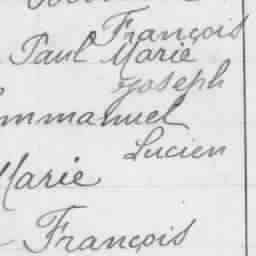 François
Paul Marie
Joseph
mmanuel
Lucien
Marie
François